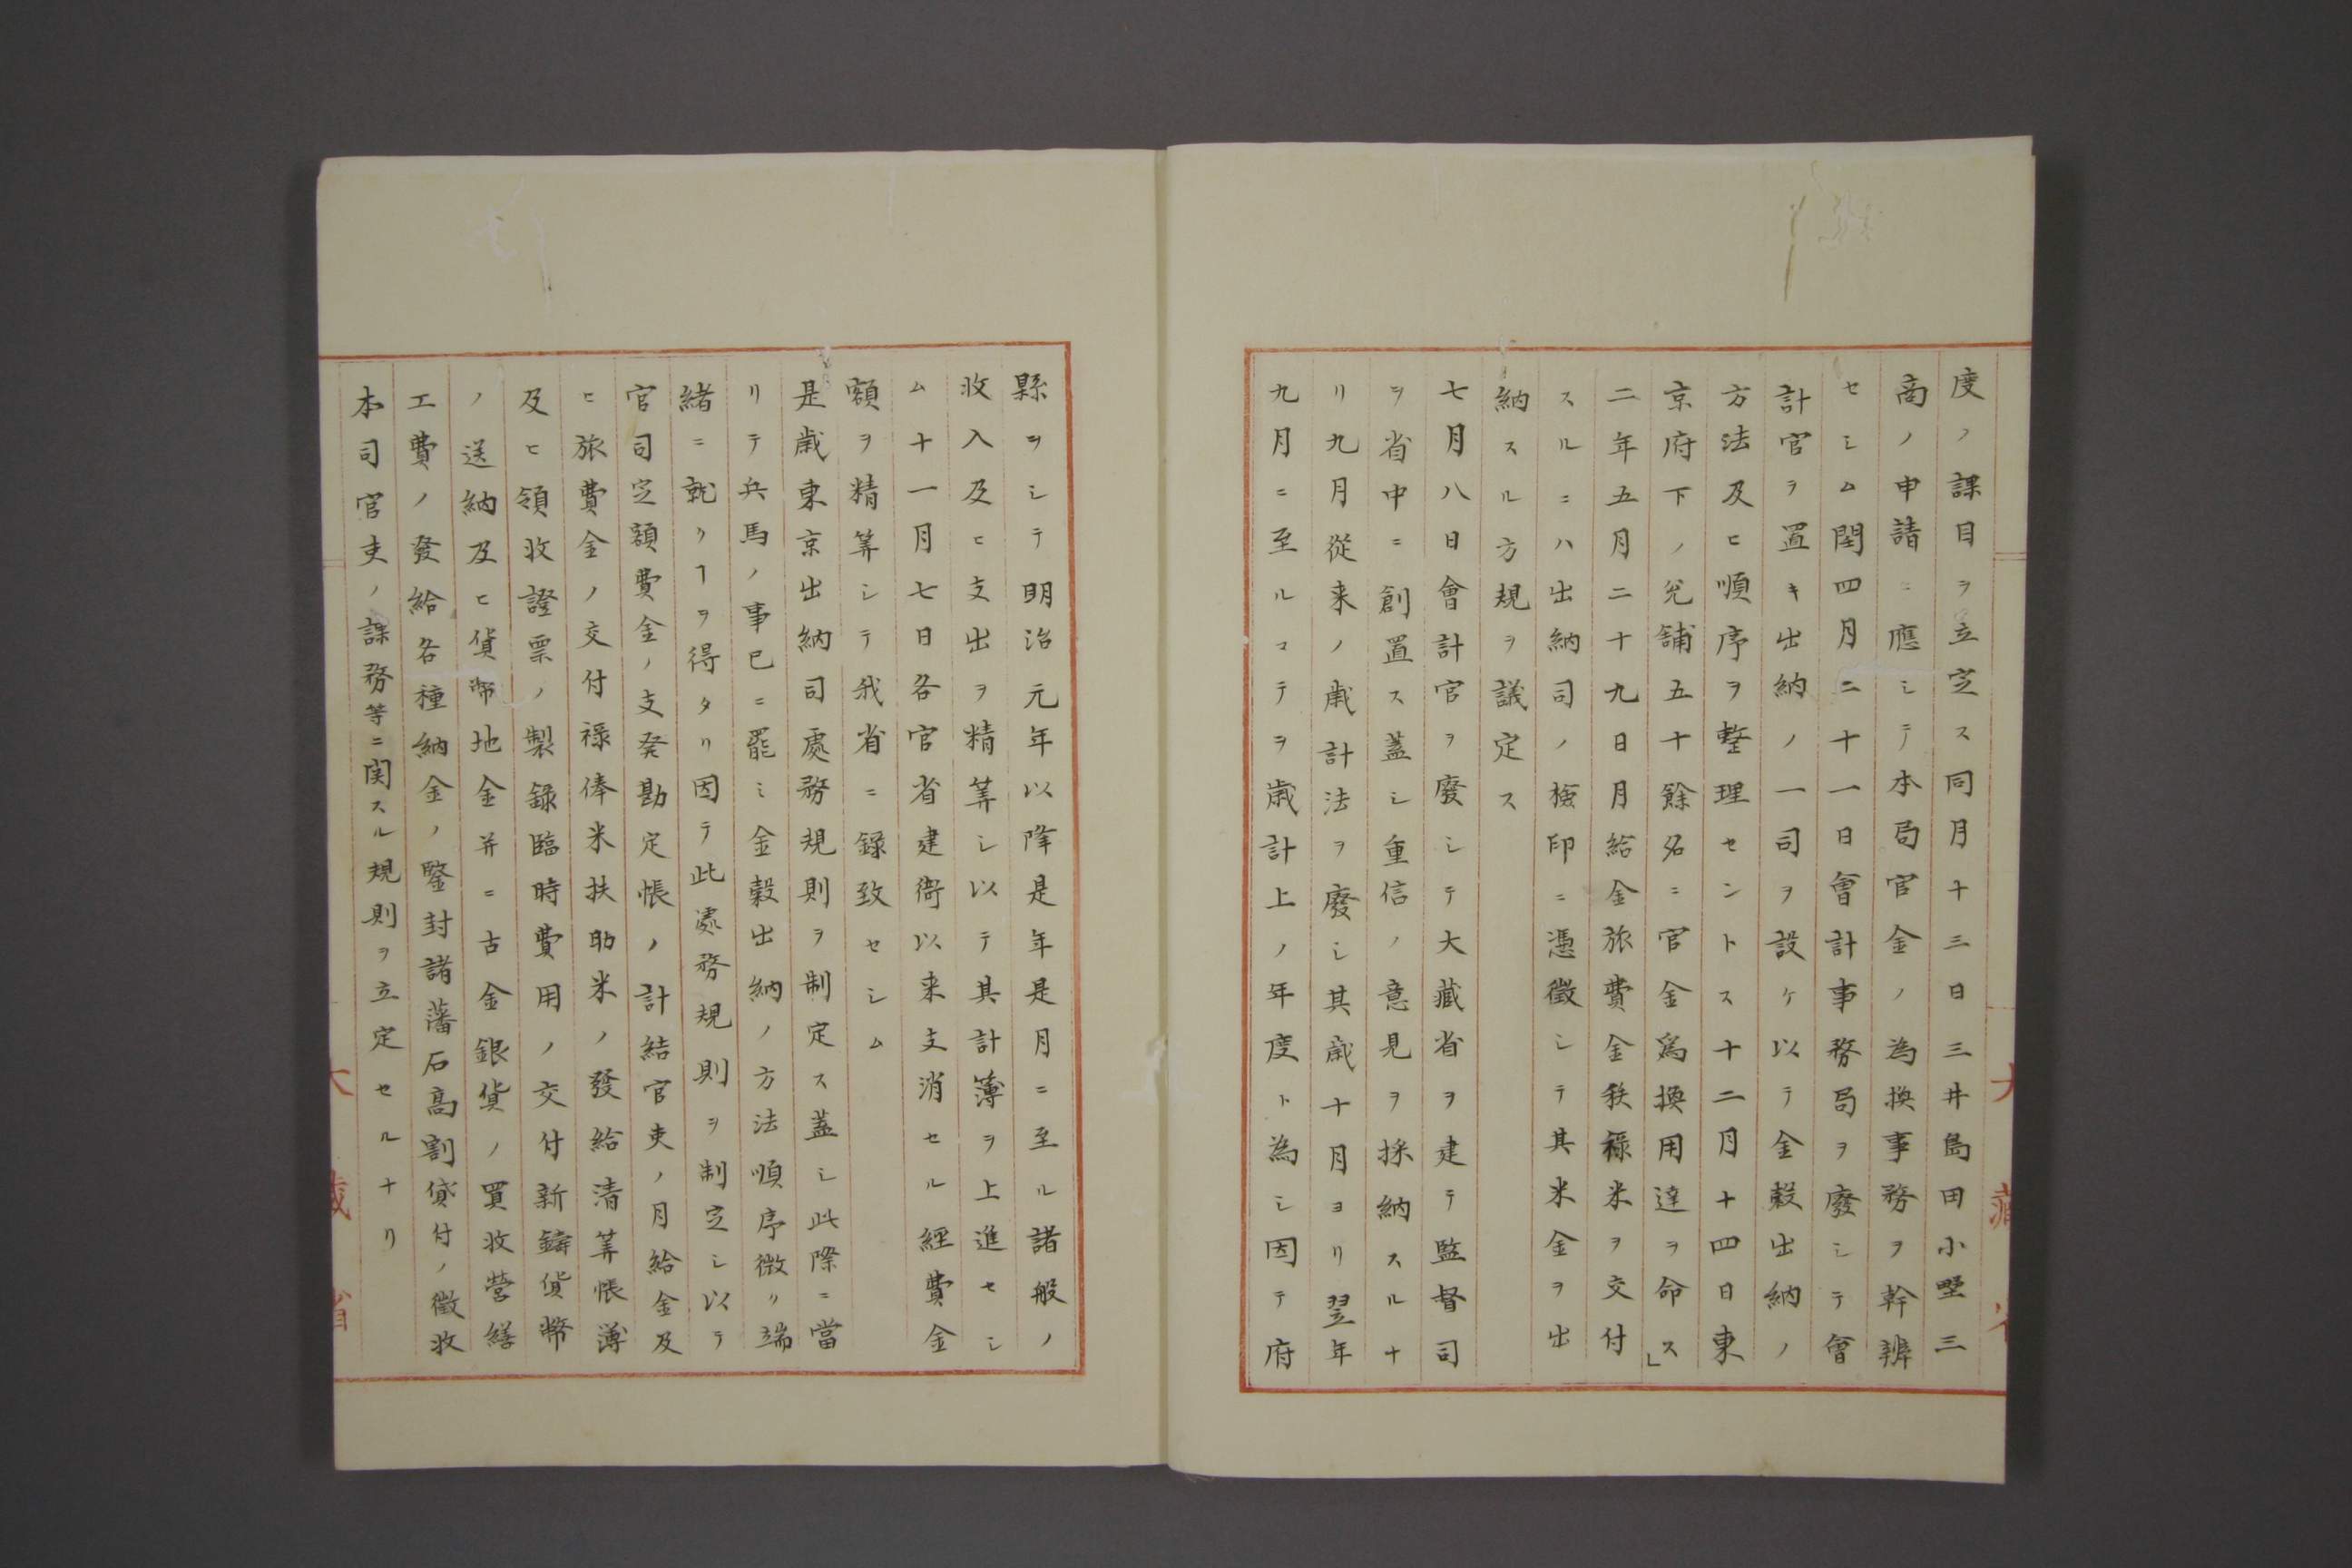 度ノ課目ヲ立定ス同月十三日三井島田小埜三
商ノ申請ニ應シテ本局官金ノ為換事務ヲ幹辨
セシム閏四月二十一日會計事務局ヲ廢シテ會
計官ヲ置キ出納ノ一司ヲ設ケ以テ金穀出納ノ
方法及ヒ順序ヲ整理セントス十二月十四日東
京府下ノ兌舗五十餘名ニ官金爲換用達ヲ命ス」
二年五月二十九日月給金旅費金秩祿米ヲ交付
スルニハ出納司ノ檢印ニ憑徴シテ其米金ヲ出
納スル方規ヲ議定ス
七月八日會計官ヲ廢シテ大藏省ヲ建テ監督司
ヲ省中ニ創置ス蓋シ重信ノ意見ヲ採納スルナ
リ九月從来ノ歳計法ヲ廢シ其歳十月ヨリ翌年
九月ニ至ルマテヲ歳計上ノ年度ト為シ因テ府
大藏省
縣ヲシテ明治元年以降是年是月ニ至ル諸般ノ
收入及ヒ支出ヲ精筭シ以テ其計簿ヲ上進セシ
ム十一月七日各官省建衙以来支消セル經費金
額ヲ精筭シテ我省ニ録致セシム
是歳東京出納司處務規則ヲ制定ス蓋シ此際ニ當
リテ兵馬ノ事已ニ罷ミ金穀出納ノ方法順序微リ端
緒ニ就クヿヲ得タリ因テ此處務規則ヲ制定シ以テ
官司定額費金ノ支発勘定帳ノ計結官吏ノ月給金及
ヒ旅費金ノ交付禄俸米扶助米ノ發給清筭帳簿
及ヒ領收證票ノ製録臨時費用ノ交付新鑄貨幣
ノ送納及ヒ貨幣地金并ニ古金銀貨ノ買收營繕
工費ノ發給各種納金ノ鑒封諸藩石高割貸付ノ徴收
本司官吏ノ課務等ニ関スル規則ヲ立定セルナリ
大藏省